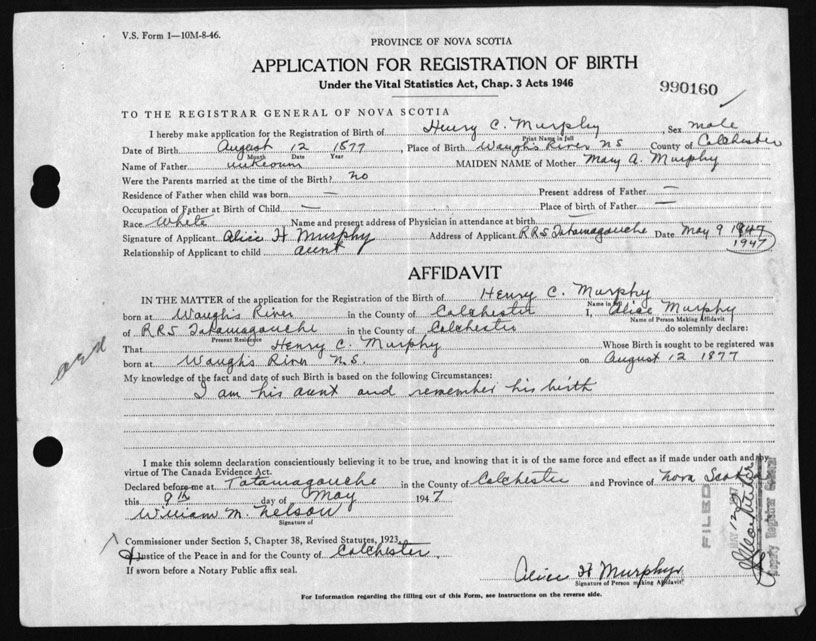 V.S. Form 1—10M-8-46.
PROVINCE OF NOVA SCOTIA
APPLICATION FOR REGISTRATION OF BIRTH
Under the Vital Statistics Act, Chap. 3 Acts 1946
990160
TO THE REGISTRAR GENERAL OF NOVA SCOTIA
I hereby make application for the Registration of Birth of Henry C. Murphy, Sex male
Print Name in full
Date of Birth August 12 1877, Place of Birth Waugh's River N S County of Colchester
Month Date Year
Name of Father unknown MAIDEN NAME of Mother Mary A. Murphy
Were the Parents married at the time of the Birth? no
Residence of Father when child was born — Present address of Father —
Occupation of Father at Birth of Child — Place of birth of Father —
Race White Name and present address of Physician in attendance at birth —
Signature of Applicant Alice H Murphy Address of Applicant R R 5 Tatamagouche Date May 9 1947
1947
Relationship of Applicant to child aunt
AFFIDAVIT
IN THE MATTER of the application for the Registration of the Birth of Henry C. Murphy
Name in full
born at Waugh's River in the County of Colchester I, Alice Murphy
Name of Person Making Affidavit
of R R 5 Tatamagouche in the County of Colchester do solemnly declare:
Present Residence
That Henry C. Murphy Whose Birth is sought to be registered was
born at Waugh's River N.S. on August 12 1877
My knowledge of the fact and date of such Birth is based on the following Circumstances:
I am his aunt and remember his birth
I make this solemn declaration conscientiously believing it to be true, and knowing that it is of the same force and effect as if made under oath and by
virtue of The Canada Evidence Act.
Declared before me at Tatamagouche in the County of Colchester and Province of Nova Scotia
this 9th day of May 1947
William M. Nelson
Signature of
Commissioner under Section 5, Chapter 38, Revised Statutes, 1923,
or Justice of the Peace in and for the County of Colchester.
If sworn before a Notary Public affix seal.
Alice H Murphy
Signature of Person making Affidavit
For Information regarding the filling out of this Form, see instructions on the reverse side.
FILED
Deputy Registrar General